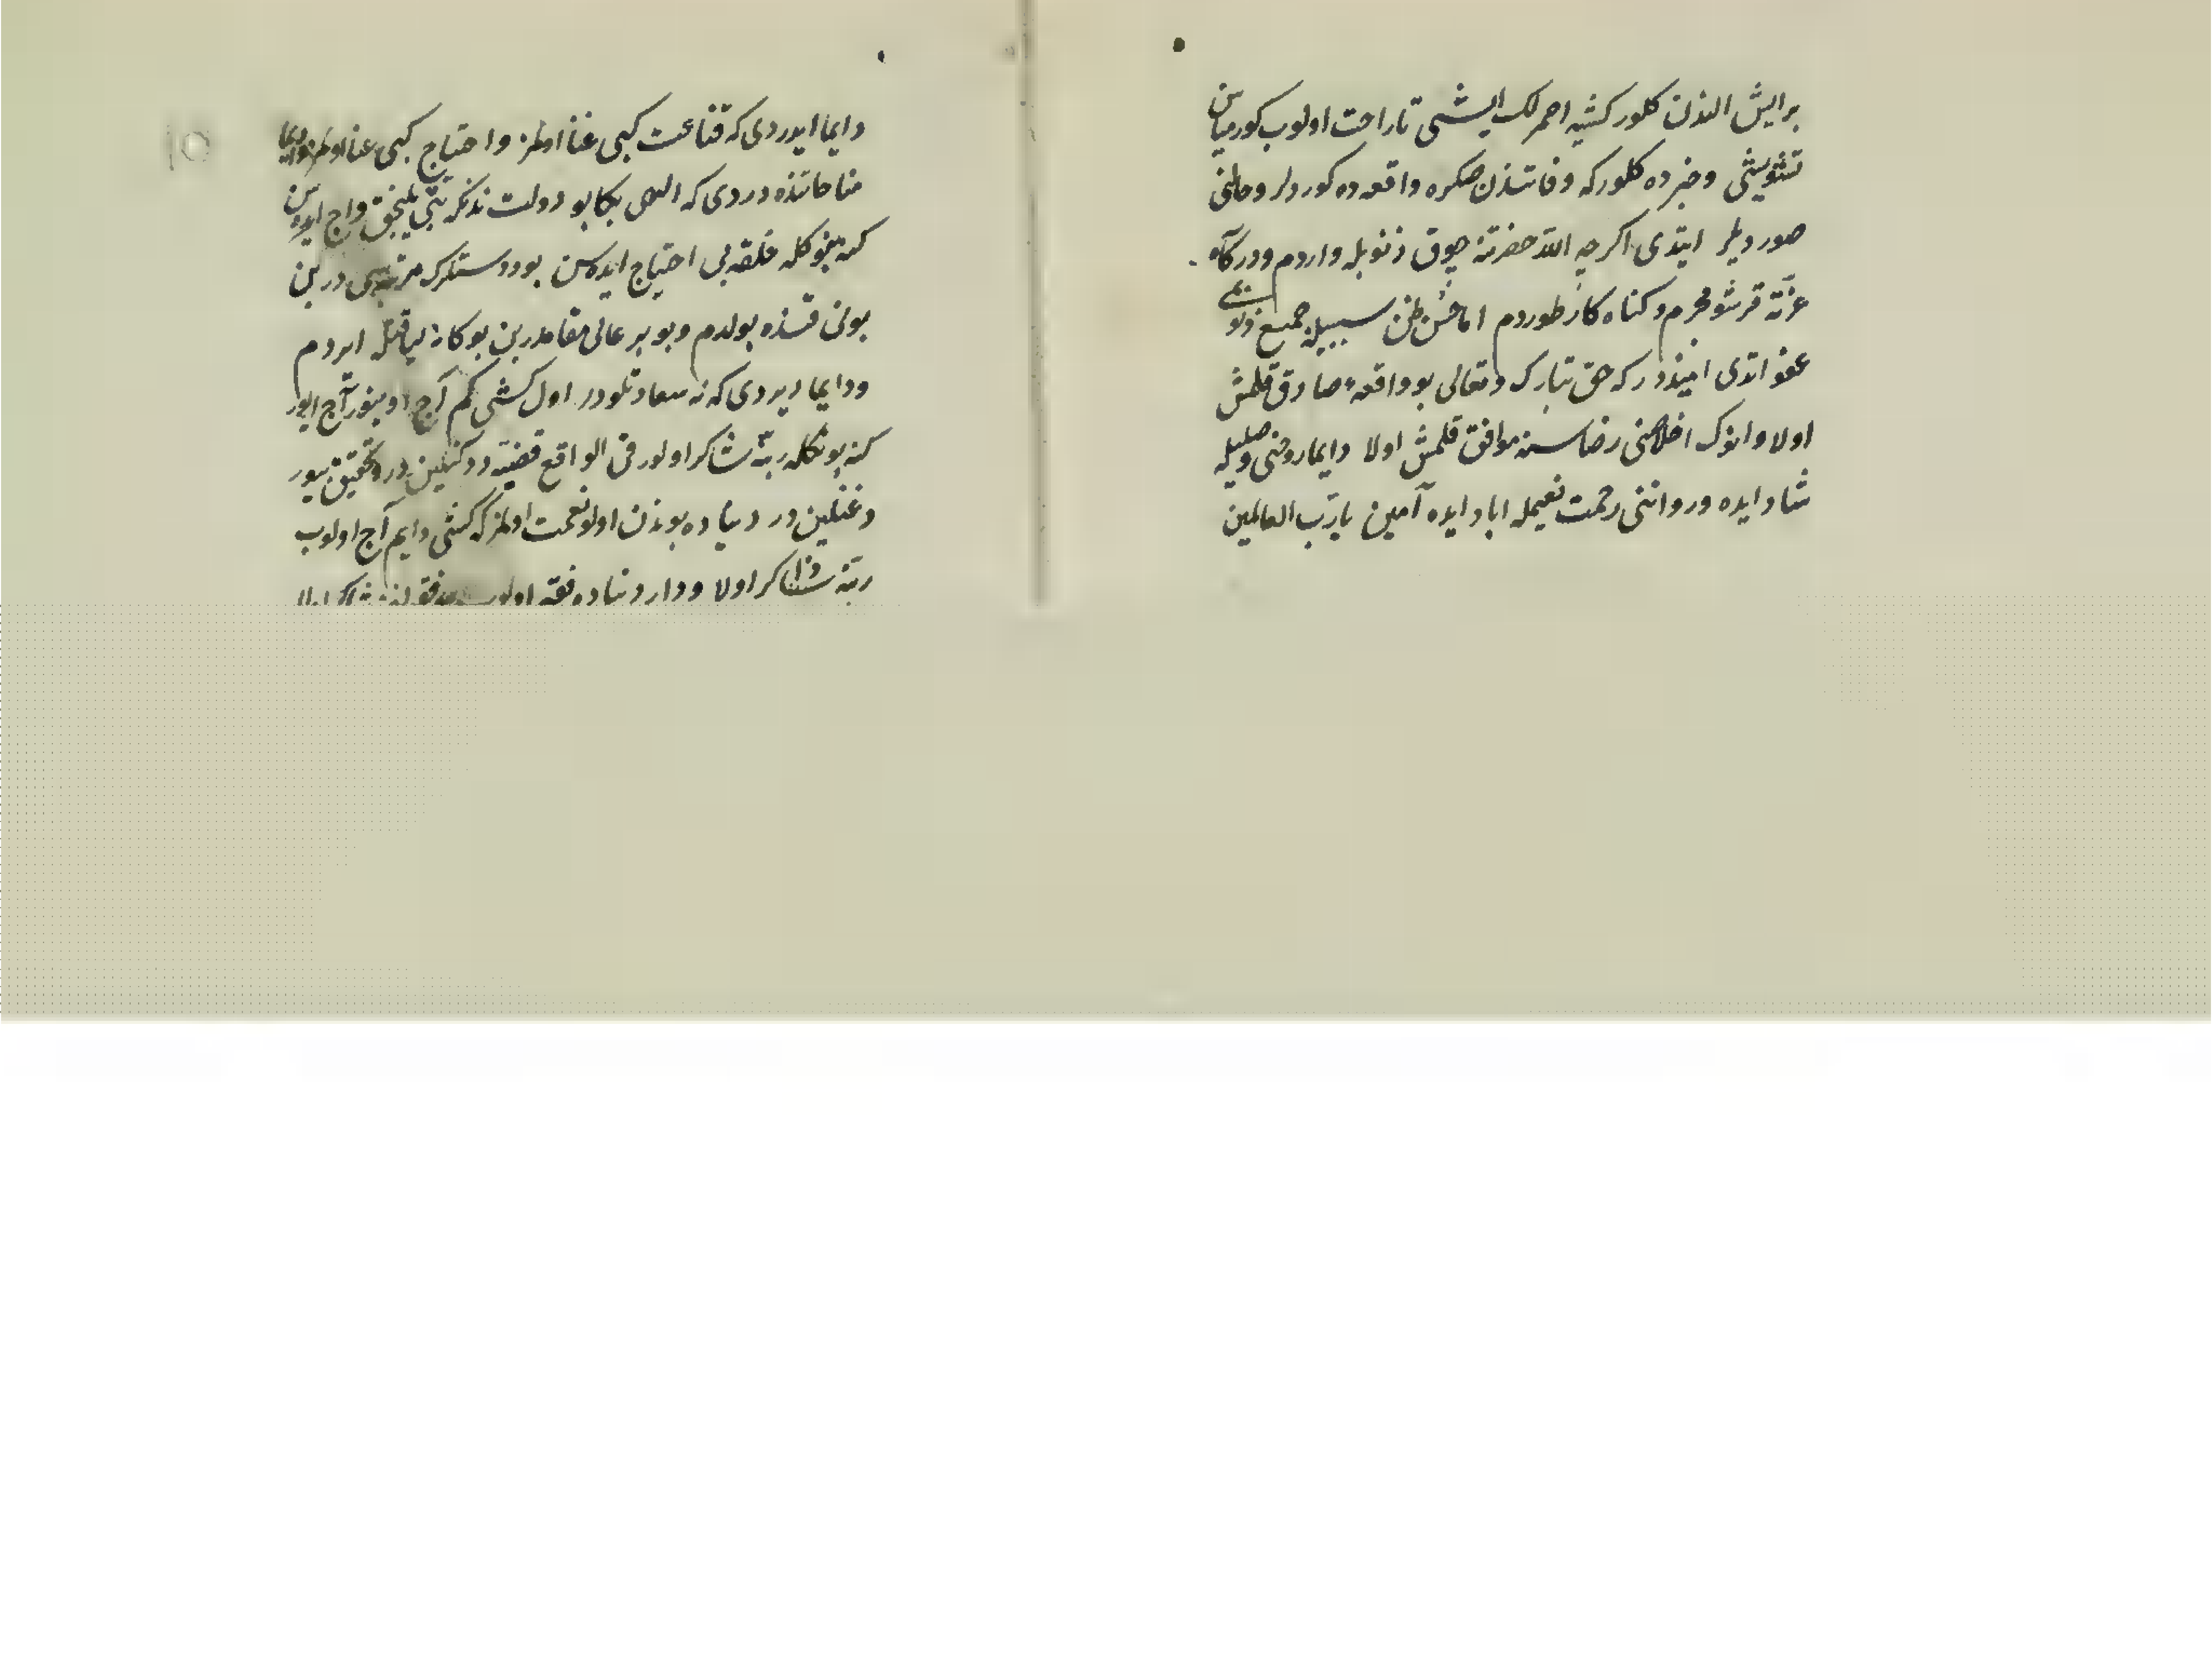 بر ایش الندن کلور کشیه احمرلک ایشی تا راحت اولوب کورمیاسن
تشویشی و خبرده کلورکه وفاتندن صکره واقعه ده کوردلر و حالنی
صوردیلر ایتدی اکرچه الله حضرتنه چوق ذنوبله واردم و درکاه
عزته قرشو مجرم و کناه کار طوردم اما حسن ظن سببیله جمیع ذنوبمی
عفو اتدی امیذدر که حق تبارک و تعالی بو واقعه صادق قلمش
اولا و انوک اخلاصنی رضاسنه موافق قلمش اولا دایما روحنی وصلیله
شاد ایده و رواننی رحمت نعیمله اباد ایده آمین یا رب العالمین
دایما ایدردی که قناعت کبی غنا اولمز و احتیاج کبی عنا اولمز و دایما
مناجاتنده دردی که الهی بکا بو دولت ندنکه بنی آج ایده سن
کمه خلقه بی احتیاج ایده سن بو دوستلرک مرتبه سی در بن
بونی قنده بولدم و بو بر عالی مقامدر بن بوکا نه لیاقتله ایردم
و دایما دیردی که نه سعادتلودر اول کشی کم آج اوینور آج ایور
کنه بونکله ربنه شاکر اولور فی الواقع قضیه در تحقیق بیور
دغنکلین در دنیاده بوندن اولو نعمت اولمز که کشی دایم آج اولوب
ربنه شاکر اولا و دار دنیاده فقیر اولوب